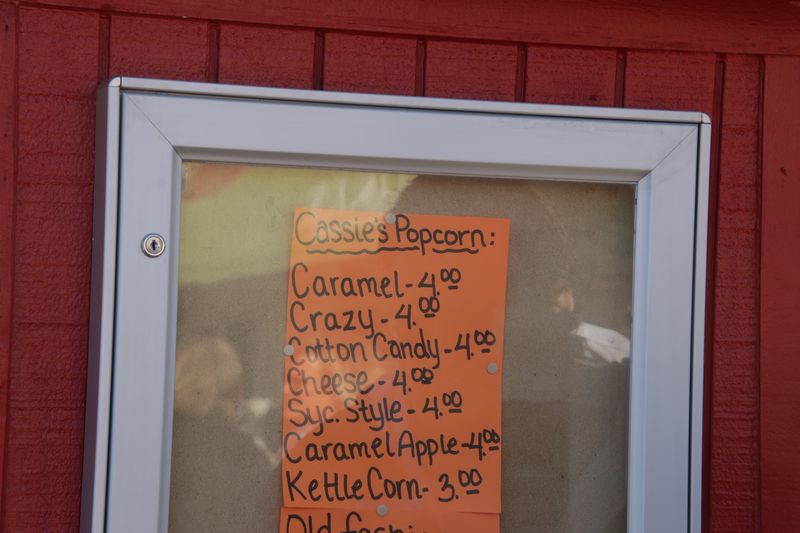 Cassie's Popcorn:
Caramel - 4.00
Crazy - 4.00
Cotton Candy - 4.00
Cheese - 4.00
Syc. Style - 4.00
Caramel Apple - 4.00
Kettle Corn - 3.00
Old